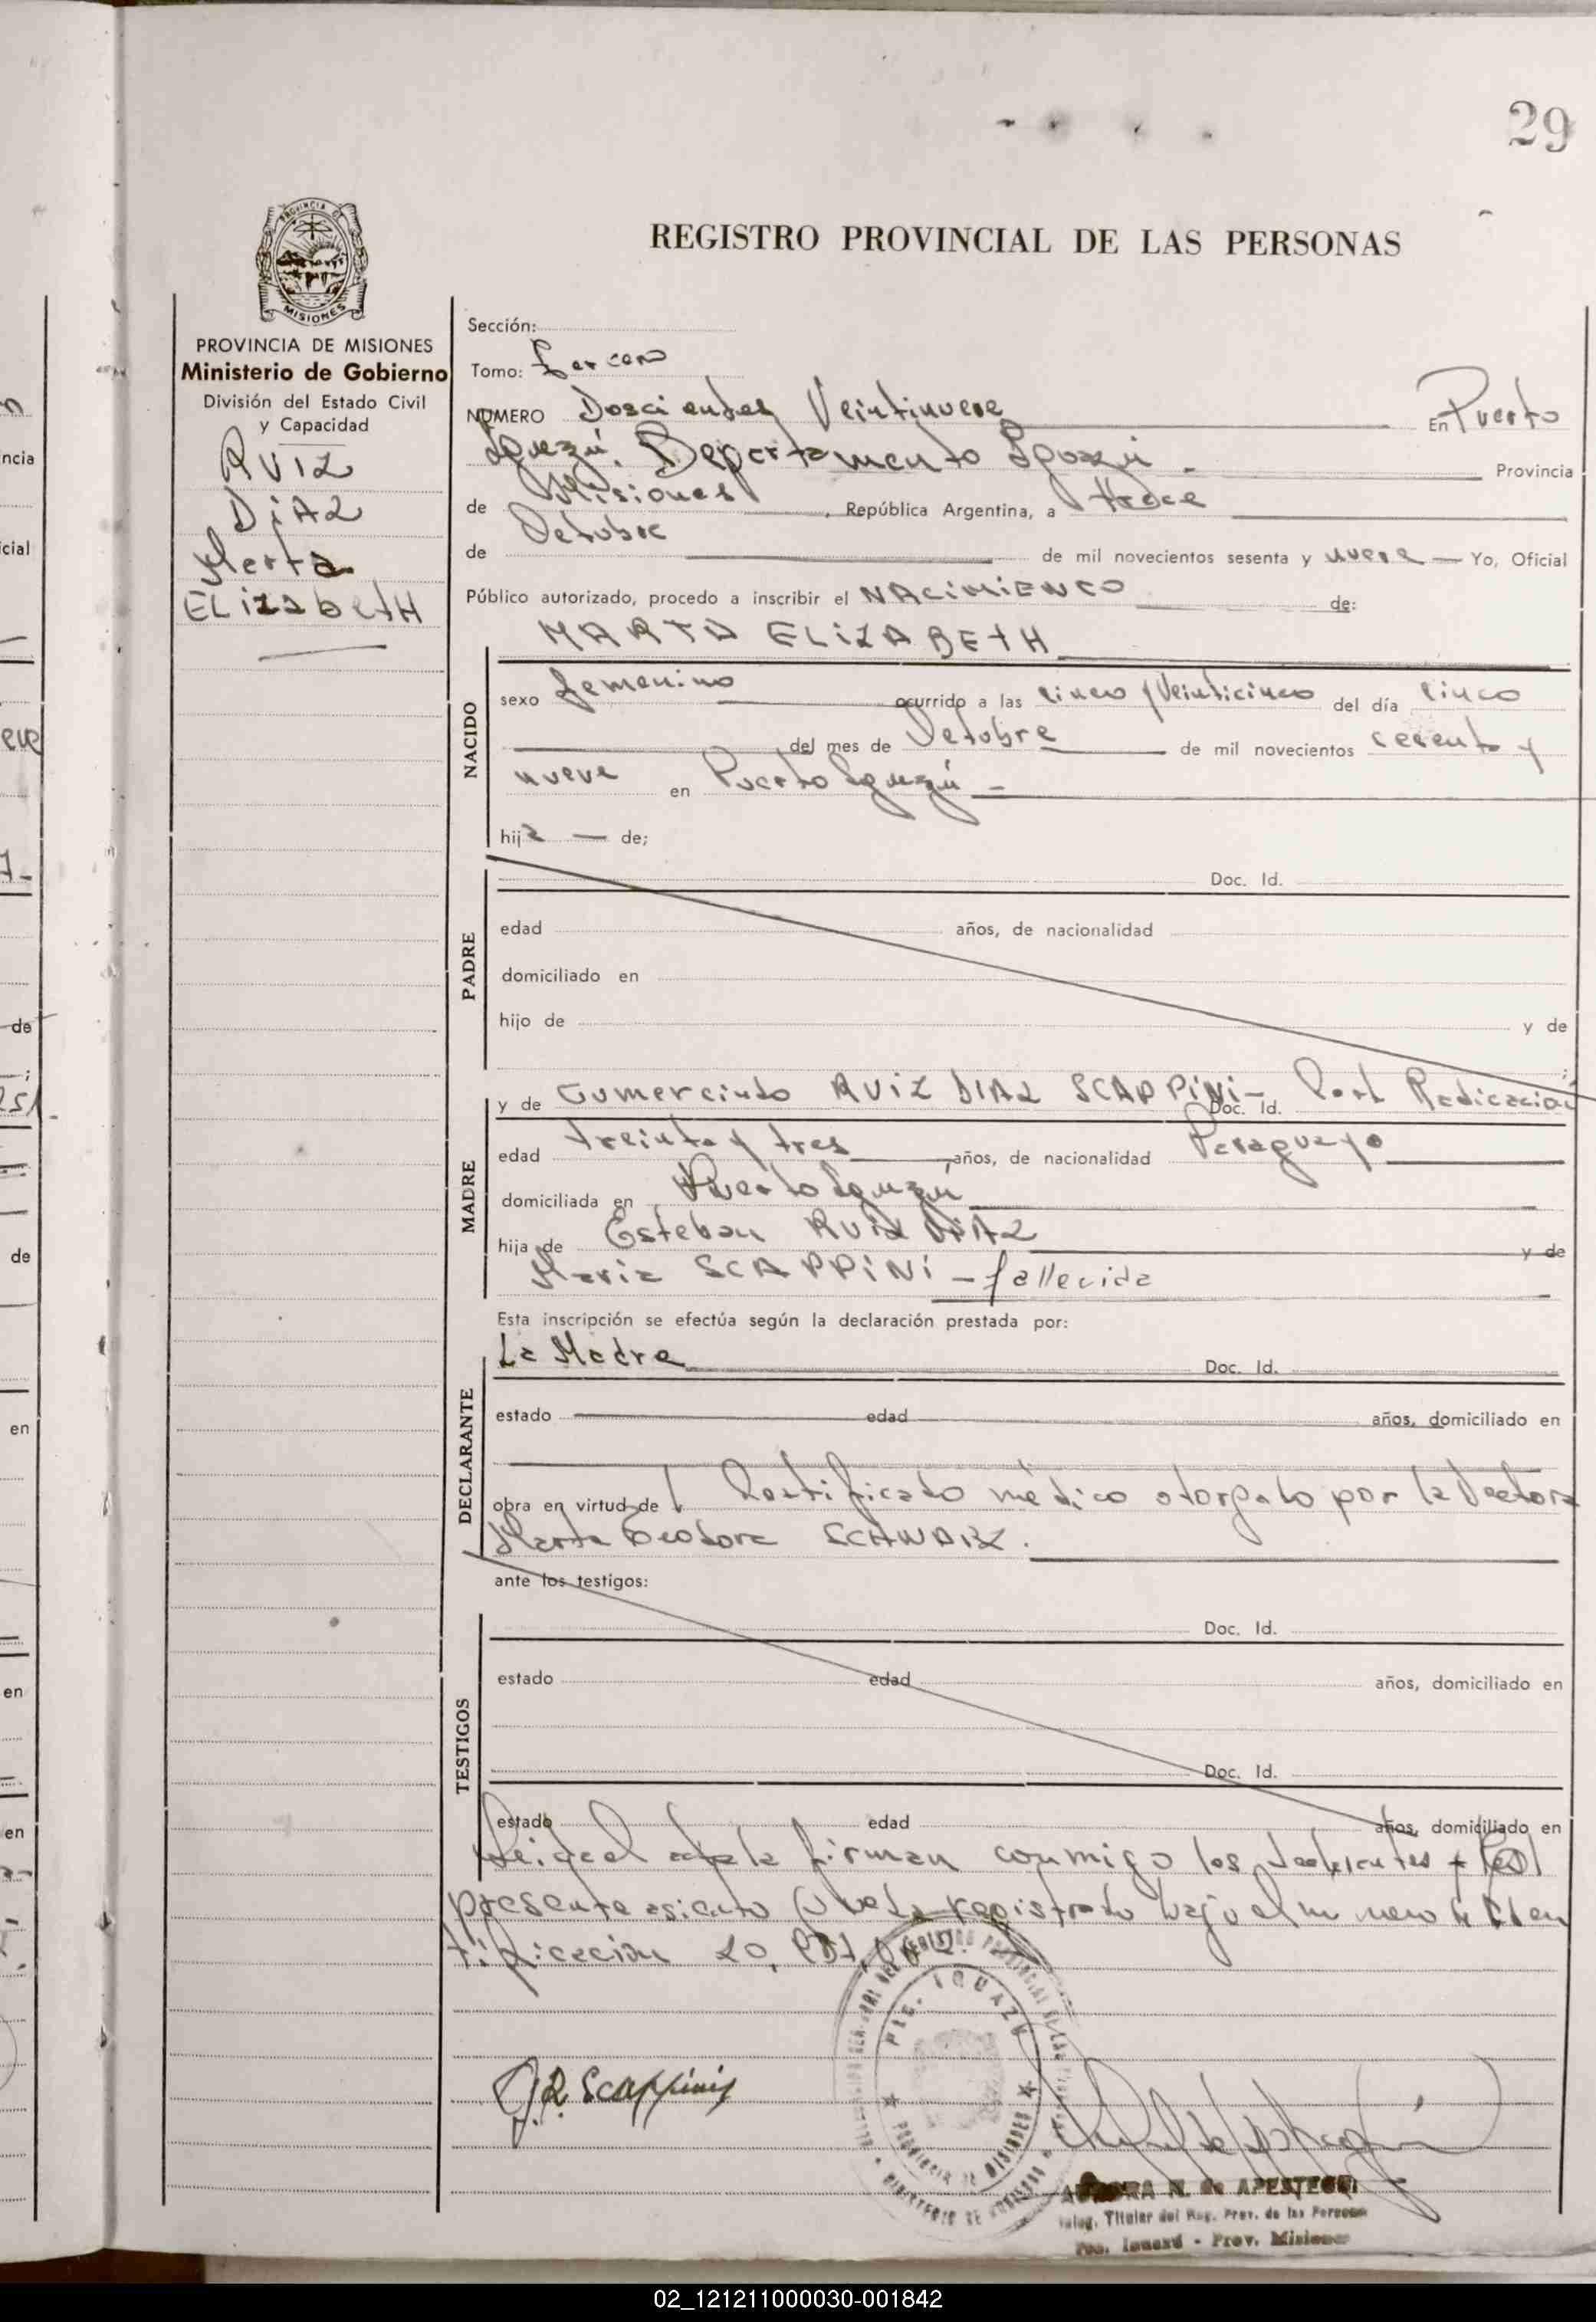 29
REGISTRO PROVINCIAL DE LAS PERSONAS
PROVINCIA DE MISIONES
MISIONES
PROVINCIA DE MISIONES
Ministerio de Gobierno
División del Estado Civil
y Capacidad
RUIZ
DIAZ
Marta
ELIZABETH
Sección:
Tomo: Tercero
NUMERO Doscientos Veintinueve En Puerto
Iguazú, Departamento Iguazú - Provincia
de Misiones, República Argentina, a trece
de Octubre de mil novecientos sesenta y nueve — Yo, Oficial
Público autorizado, procedo a inscribir el NACIMIENTO de:
MARTA ELIZABETH
NACIDO
sexo femenino ocurrido a las cinco y veinticinco del día cinco
del mes de Octubre de mil novecientos sesenta y
nueve en Puerto Iguazú -
hija — de;
PADRE
Doc. Id.
edad años, de nacionalidad
domiciliado en
hijo de y de
MADRE
y de Gumercinda RUIZ DIAZ SCAPPINI - Doc. Id. Radicación
edad treinta y tres años, de nacionalidad Paraguaya
domiciliada en Puerto Iguazú
hija de Esteban RUIZ DIAZ y de
María SCAPPINI - fallecida
Esta inscripción se efectúa según la declaración prestada por:
DECLARANTE
La Madre Doc. Id.
estado edad años, domiciliado en
obra en virtud de Certificado médico otorgado por la Doctora
Marta Teodora SCHWARZ.
ante los testigos:
TESTIGOS
Doc. Id.
estado edad años, domiciliado en
Doc. Id.
estado edad años, domiciliado en
Leída el acta la firman conmigo los
presente asiento queda registrado bajo el número
tificación 20,
R. Scappini
PTO. IGUAZU
PROVINCIA DE MISIONES
AURORA N. de APESTEGUI
Titular del Reg. Prov. de las Personas
Pto. Iguazú - Prov. Misiones
02_121211000030-001842